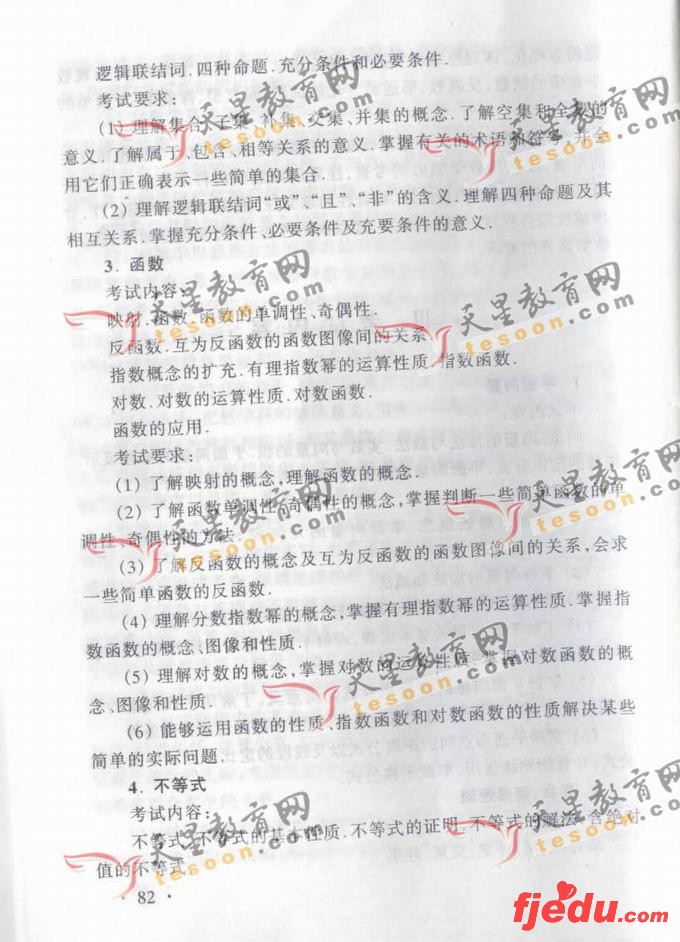 逻辑联结词.四种命题.充分条件和必要条件.
考试要求:
(1) 理解集合、子集、补集、交集、并集的概念.了解空集和全集的
意义.了解属于、包含、相等关系的意义.掌握有关的术语和符号,并会
用它们正确表示一些简单的集合.
(2) 理解逻辑联结词“或”、“且”、“非”的含义.理解四种命题及其
相互关系.掌握充分条件、必要条件及充要条件的意义.
3. 函数
考试内容:
映射.函数.函数的单调性、奇偶性.
反函数.互为反函数的函数图像间的关系.
指数概念的扩充.有理指数幂的运算性质.指数函数.
对数.对数的运算性质.对数函数.
函数的应用.
考试要求:
(1) 了解映射的概念,理解函数的概念.
(2) 了解函数单调性、奇偶性的概念,掌握判断一些简单函数的单
调性、奇偶性的方法.
(3) 了解反函数的概念及互为反函数的函数图像间的关系,会求
一些简单函数的反函数.
(4) 理解分数指数幂的概念,掌握有理指数幂的运算性质.掌握指
数函数的概念、图像和性质.
(5) 理解对数的概念,掌握对数的运算性质.掌握对数函数的概
念、图像和性质.
(6) 能够运用函数的性质、指数函数和对数函数的性质解决某些
简单的实际问题.
4. 不等式
考试内容:
不等式.不等式的基本性质.不等式的证明.不等式的解法.含绝对
值的不等式.
· 82 ·
天星教育网
tesoon.com
天星教育网
tesoon.com
天星教育网
tesoon.com
天星教育网
tesoon.com
天星教育网
tesoon.com
天星教育网
tesoon.com
天星教育网
tesoon.com
天星教育网
tesoon.com
天星教育网
tesoon.com
天星教育网
tesoon.com
fjedu.com